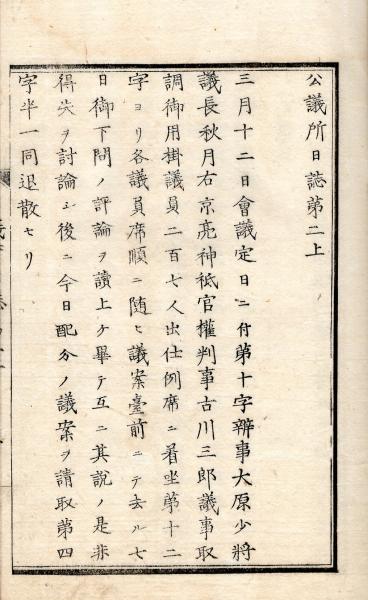 公議所日誌第二上
三月十二日會議定日ニ付第十字辨事大原少將
議長秋月右京亮神祇官權判事古川三郎議事取
調御用掛議員二百七人出仕例席ニ着坐第十二
字ヨリ各議員席順ニ隨ヒ議案臺前ニテ去ル七
日御下問ノ評論ヲ讀上ケ畢テ互ニ其說ノ是非
得失ヲ討論シ後ニ今日配分ノ議案ヲ請取第四
字半一同退散セリ